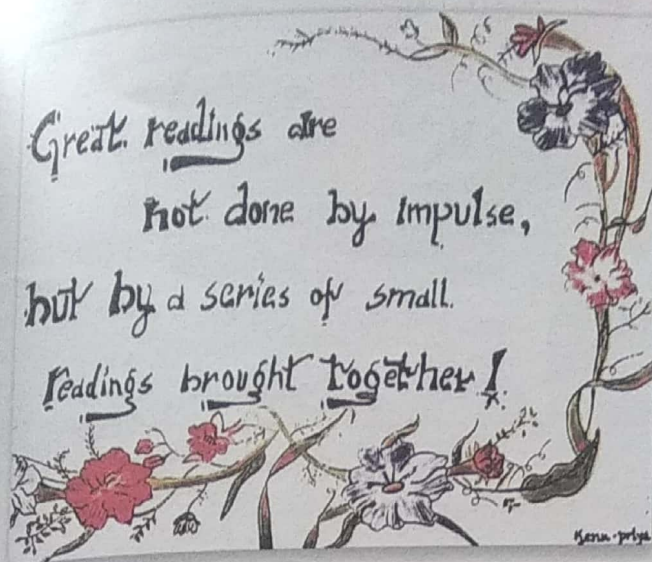 Great readings are
not done by impulse,
but by a series of small
readings brought together!